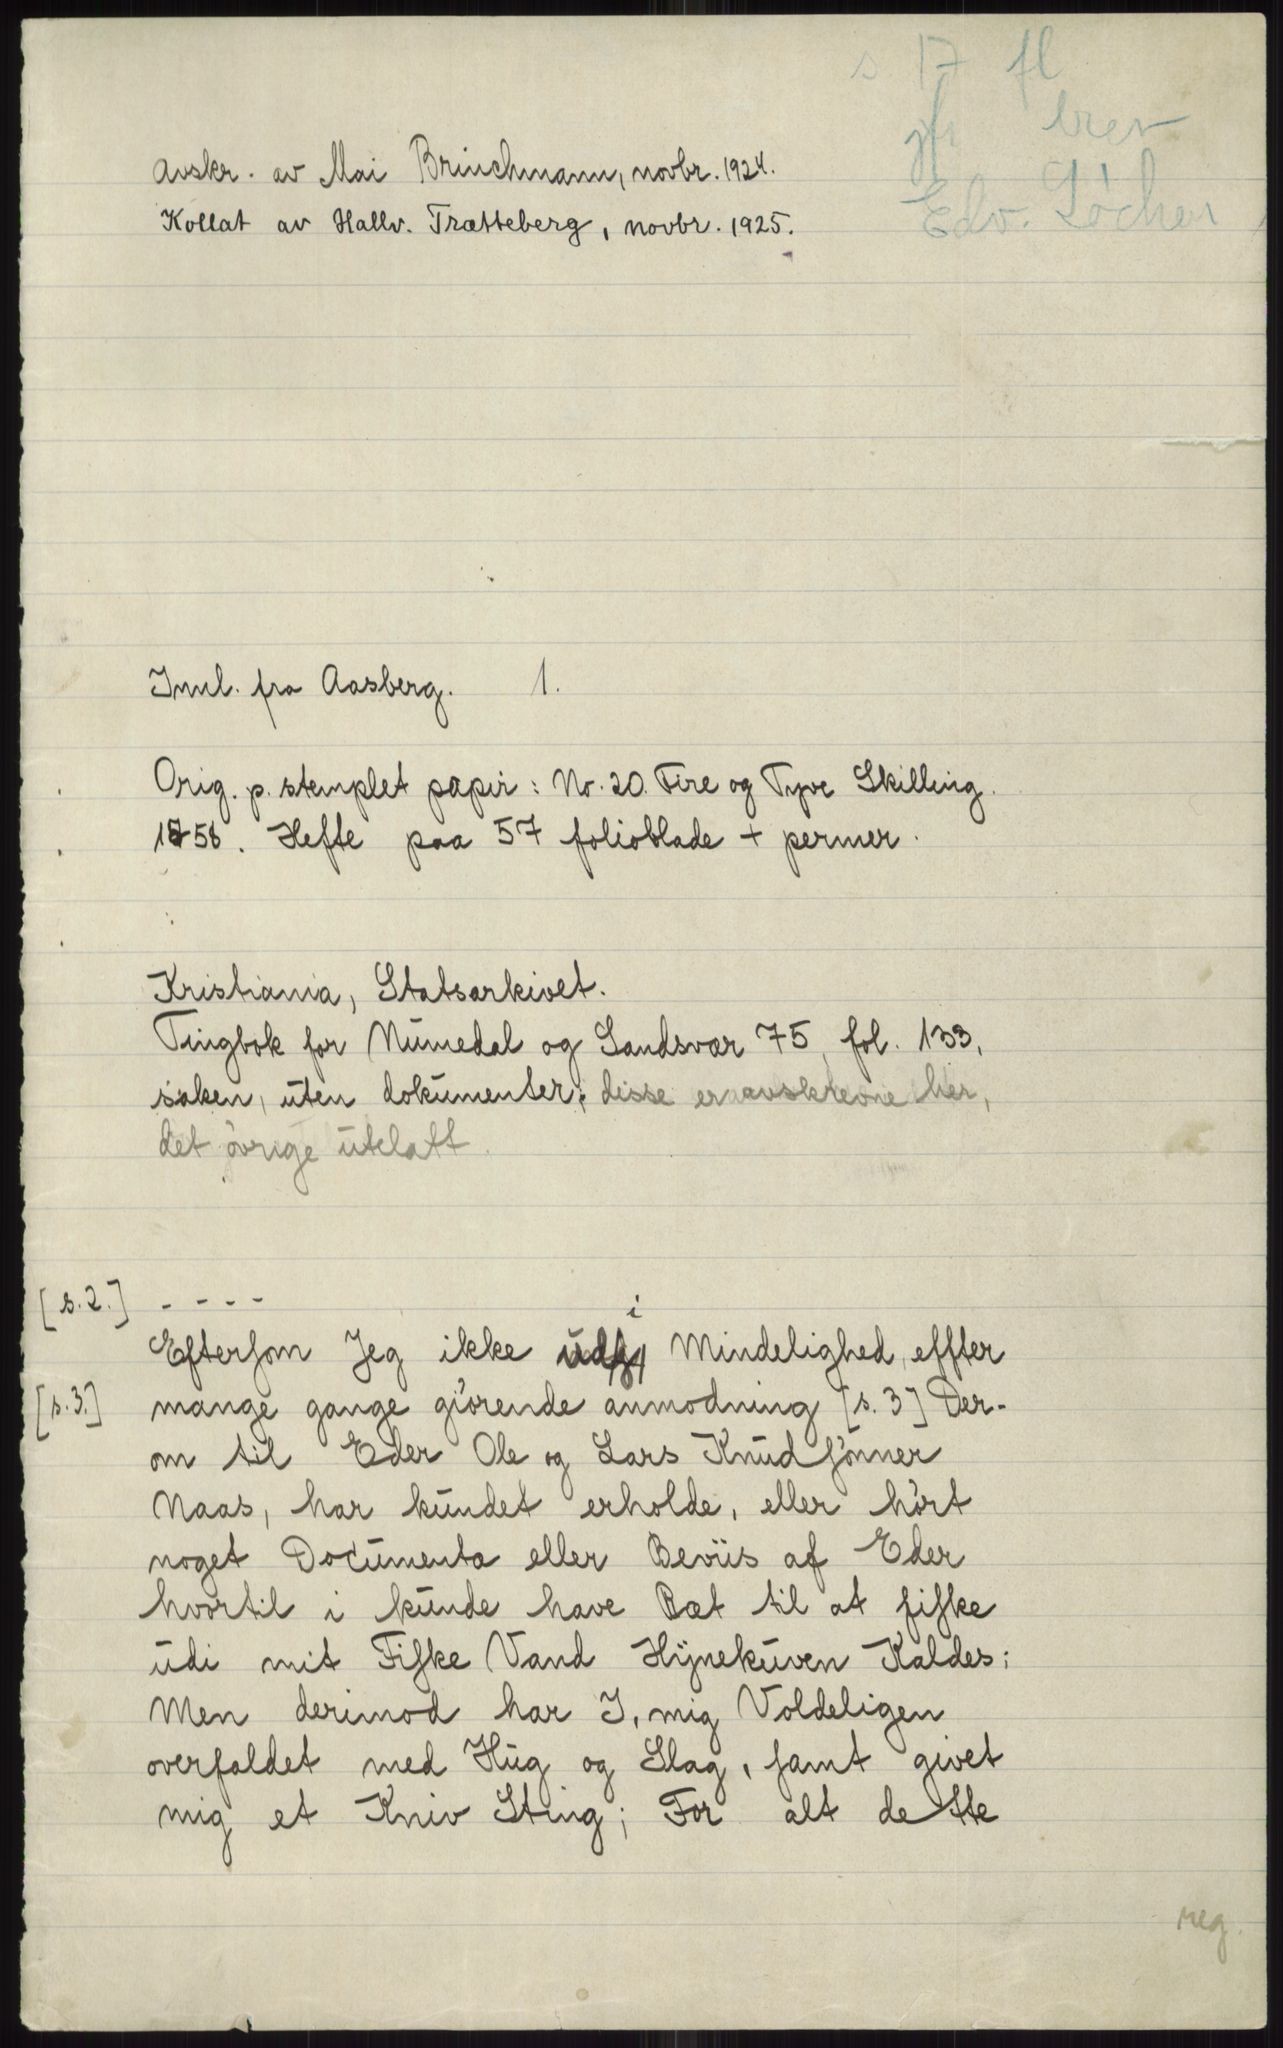 s. 17 fl
jfr brev
Edv. Löchen
Avskr. av Mai Brinchmann, novbr. 1924.
Kollat av Hallv. Trætteberg, novbr. 1925.
Innl. fra Aasberg. 1.
Orig. p. stemplet papir: No. 20. Fire og Tyve Skilling.
1758. Hefte paa 57 folioblade + permer.
Kristiania, Statsarkivet.
Tingbok for Numedal og Sandsvær 75, fol. 133,
saken, uten dokumenter; disse er avskrevne her,
det övrige utelatt.
[s. 2.] - - - -
Eftersom Jeg ikke i Mindelighed, effter
[s. 3.] mange gange giörende anmodning [s. 3] Der-
om til Eder Ole og Lars Knudsönner
Naas, har kundet erholde, eller hört
noget Documenta eller Beviis af Eder
hvortil i kunde have Ræt til at fiske
udi mit Fiske Vand Hÿnekuven Kaldes;
Men derimod har I, mig Voldeligen
overfaldet med Hug og Slag, samt givet
mig et Kniv Sting; For alt dette
reg.